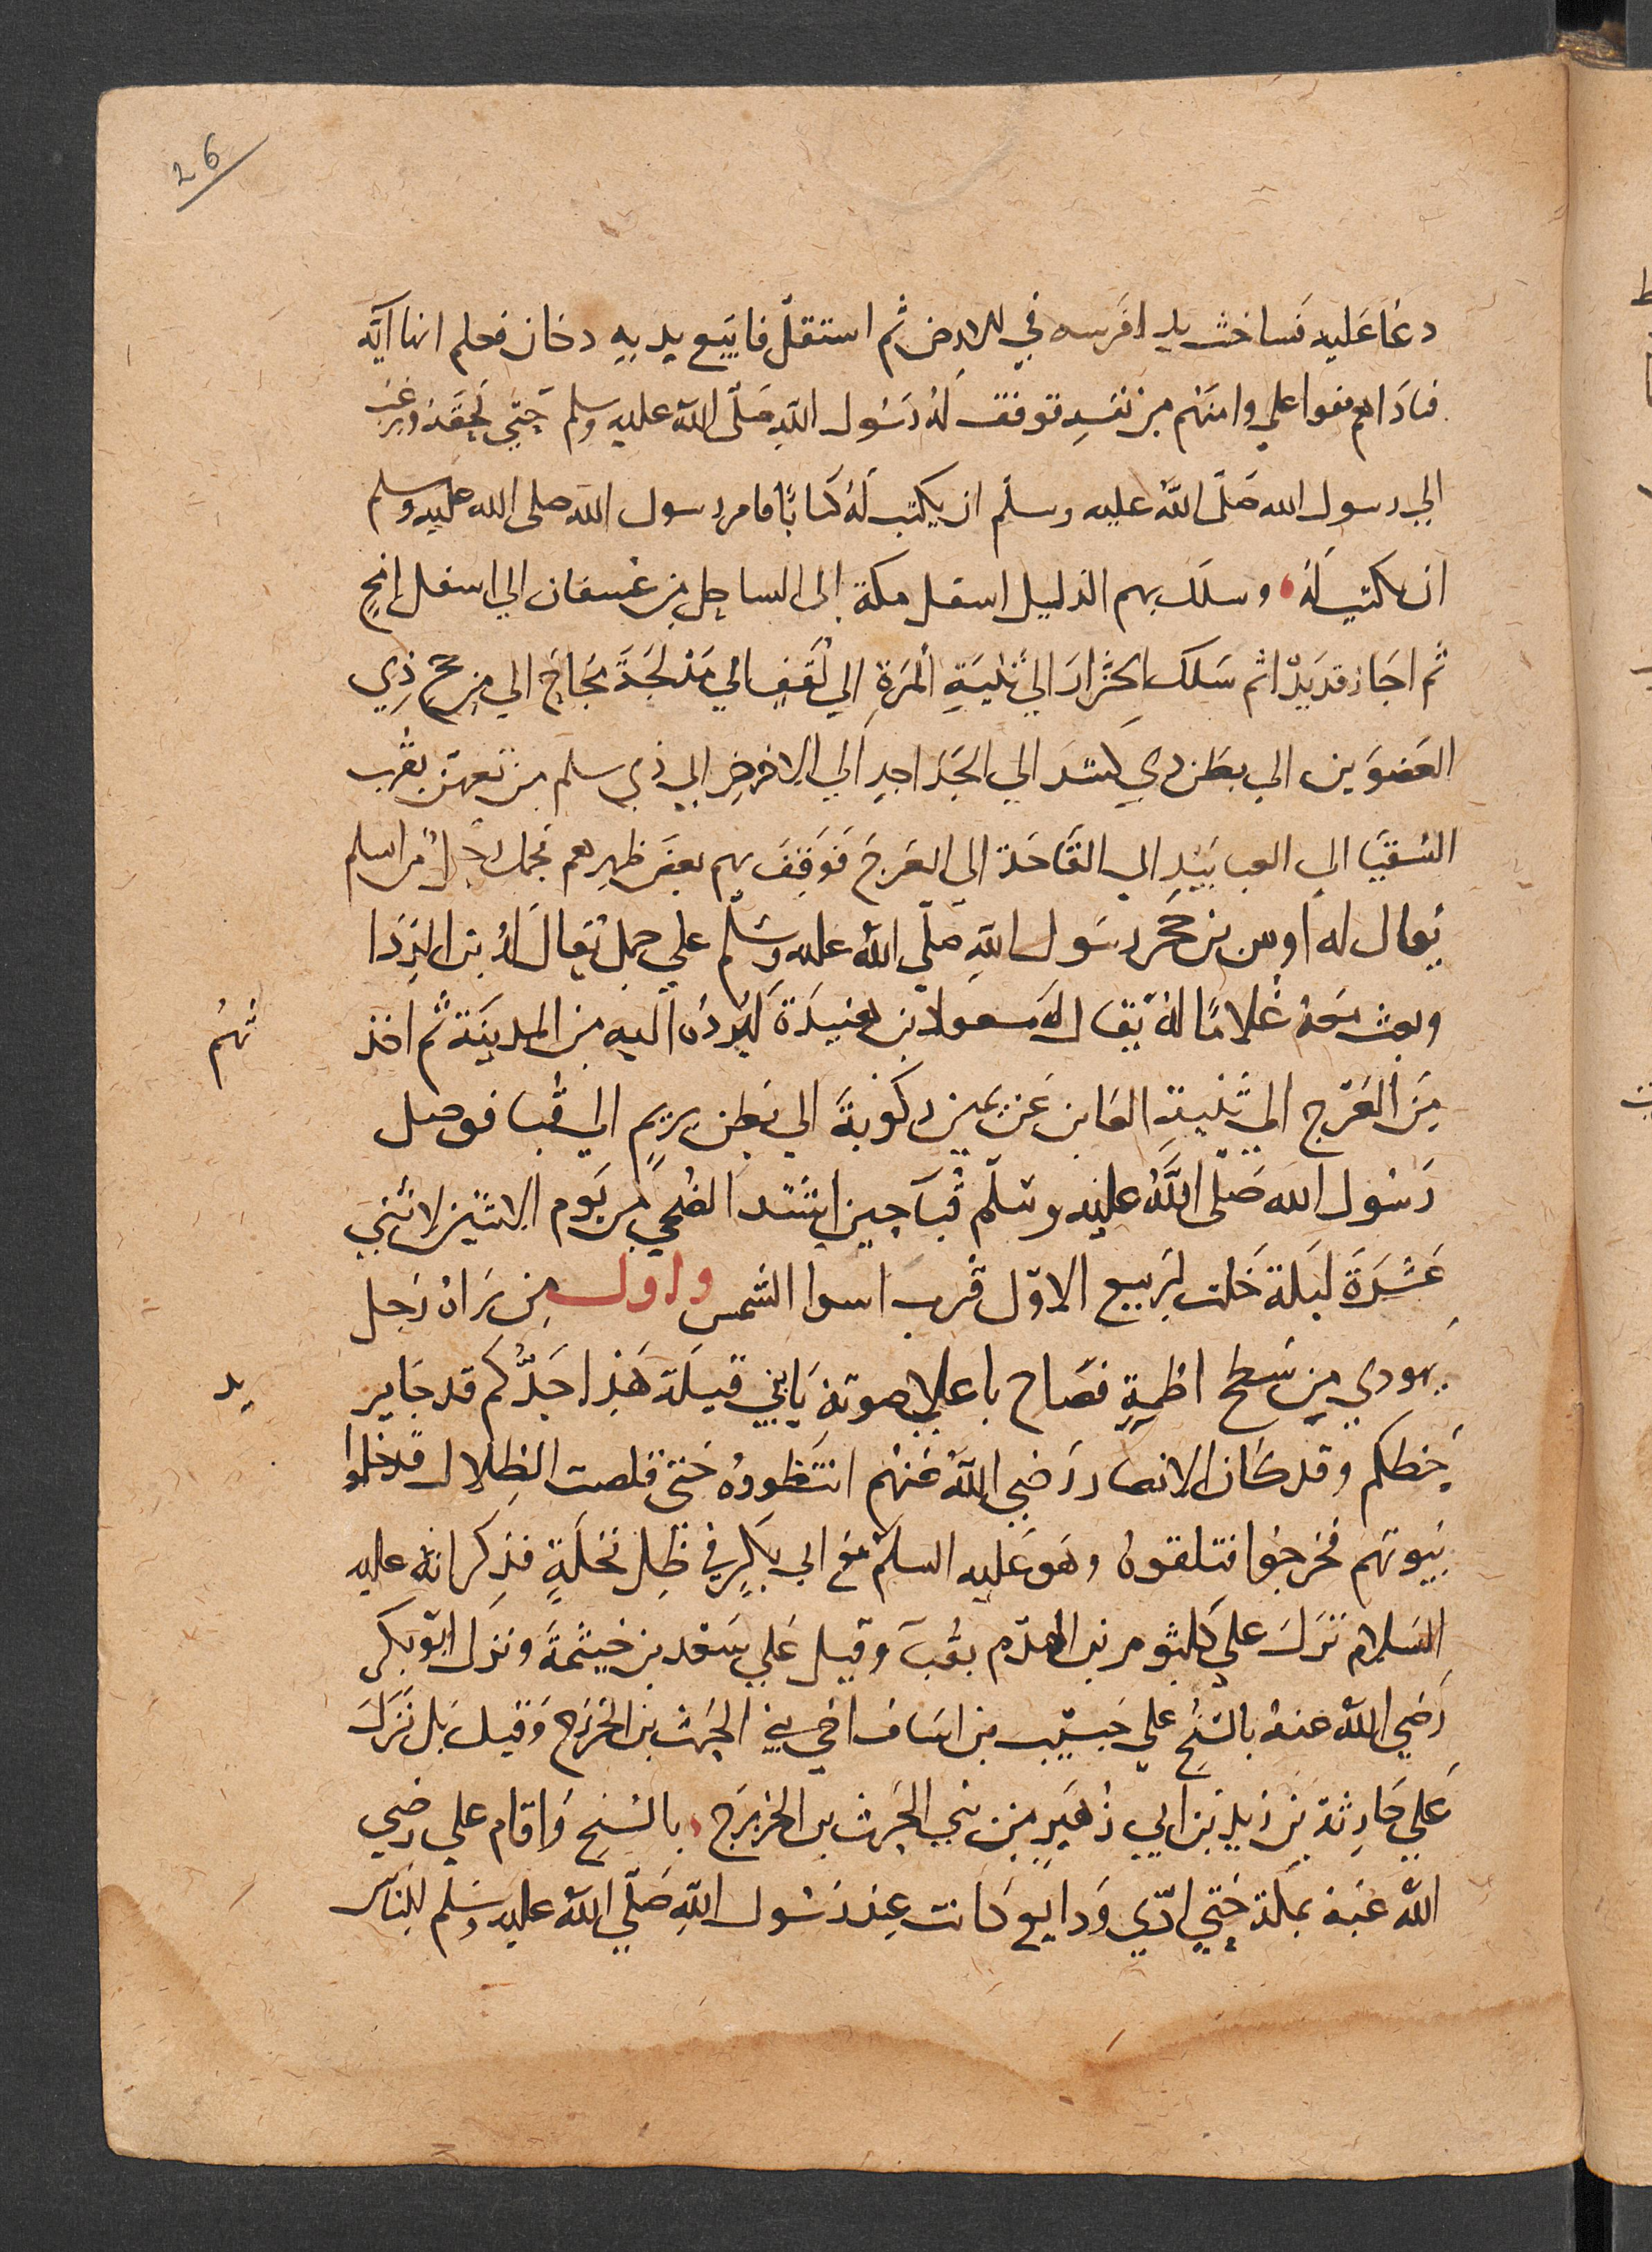 26
دعَا عَليه فساخت يدا فرسه في الارض ثم استقلّ فاتبع يديه دخان فعلم انها آيَه
فنادَاهم قفوا علي وامنهم من نفسه فوقف لهُ رَسُول اللهِ صَلّى اللّه عليه وسلم حَتّي لحقَهُ ورَغب
الي رسول الله صَلّى اللّهُ عليه وسلّم ان يكتب لهُ كتابًا فامر رسول اللّه صلى اللّه عليه وسلم
ان يكتب لهُ وسلك بهم الدليل اسفل مكة الى الساحِل من عُسفان الي اسفل امجٍ
ثم اجَاز قديدًا ثم سَلك الخرّار الي ثنيَةِ المرَةِ الي لقفٍ الي مَدلجَةَ مجَاجَ الي مرجح ذِي
العَضوَين الي بطن ذي كشدَ الي الجَدَاجدِ الي الاجردِ الي ذي سلم من تعهن بقُرب
السُقيَا الي العبابيدِ الي القَاحَة الي العَرجَ فَوَقفَ بهم بعض ظهرهم فحمل رجلٌ من اسلم
يُقال له اوس بن حَجَر رسَول اللهِ صَلّي اللّه عليه وسَلّم علي جمل يُقال لهُ بن الردَا
وبعث معهُ غُلامًا لهُ يُقال لهُ مسعود بن هنيدَة ليرُدهُ اليه من المدينَة ثم اخذ
بهُم
مِن العَرَج الي ثنية العَابِر عَن يمين ركوبَةَ الي بَطن ريمٍ الي قُبا فوصل
رَسُول اللّه صَلّى اللّهُ عليه وسَلّم قُبآ حين اشتد الضُحي من يَوم الاثنين لاثنتي
عَشرَةَ ليَلة خَلت لربيع الاوّل قُرب استوا الشَمس واول من رَاهُ رَجل
يهودي من سَطح اطمةٍ فصَاح باعلا صوته يَا بني قيلَة هَذا جَدُّكم قد جَا يريد
حَظكم وقد كان الانصار رَضي اللّه عَنهُم انتَظروهُ حَتى قلصت الظِلال فدخلوا
بُيوتهم فخرجُوا فتلقوهُ وهَو عَليه السلم مَع ابي بَكرٍ في ظِل نخلَةٍ فذكر انهُ عليه
السَلام نَزَلَ علي كلثوم بن الهدَم بقُبآ وقيل عَلي سَعد بن خيثمَةَ ونزل ابو بكر
رَضي اللّه عنهُ بالسُنح علي خبيب بن اسَاف اخي بني الحرث بن الخزرَج وَقيل بَل نَزَلَ
عَلي خَارجَة بن زيد بن ابي زُهَيرٍ من بني الحرث بن الخزرَج بالسُنح وَاقام علي رضي
اللّه عَنهُ بمكة حَتي ادّي وَدايع كانت عِند رَسُول اللهِ صَلّي اللّه عليه وَسَلّم للنَاس